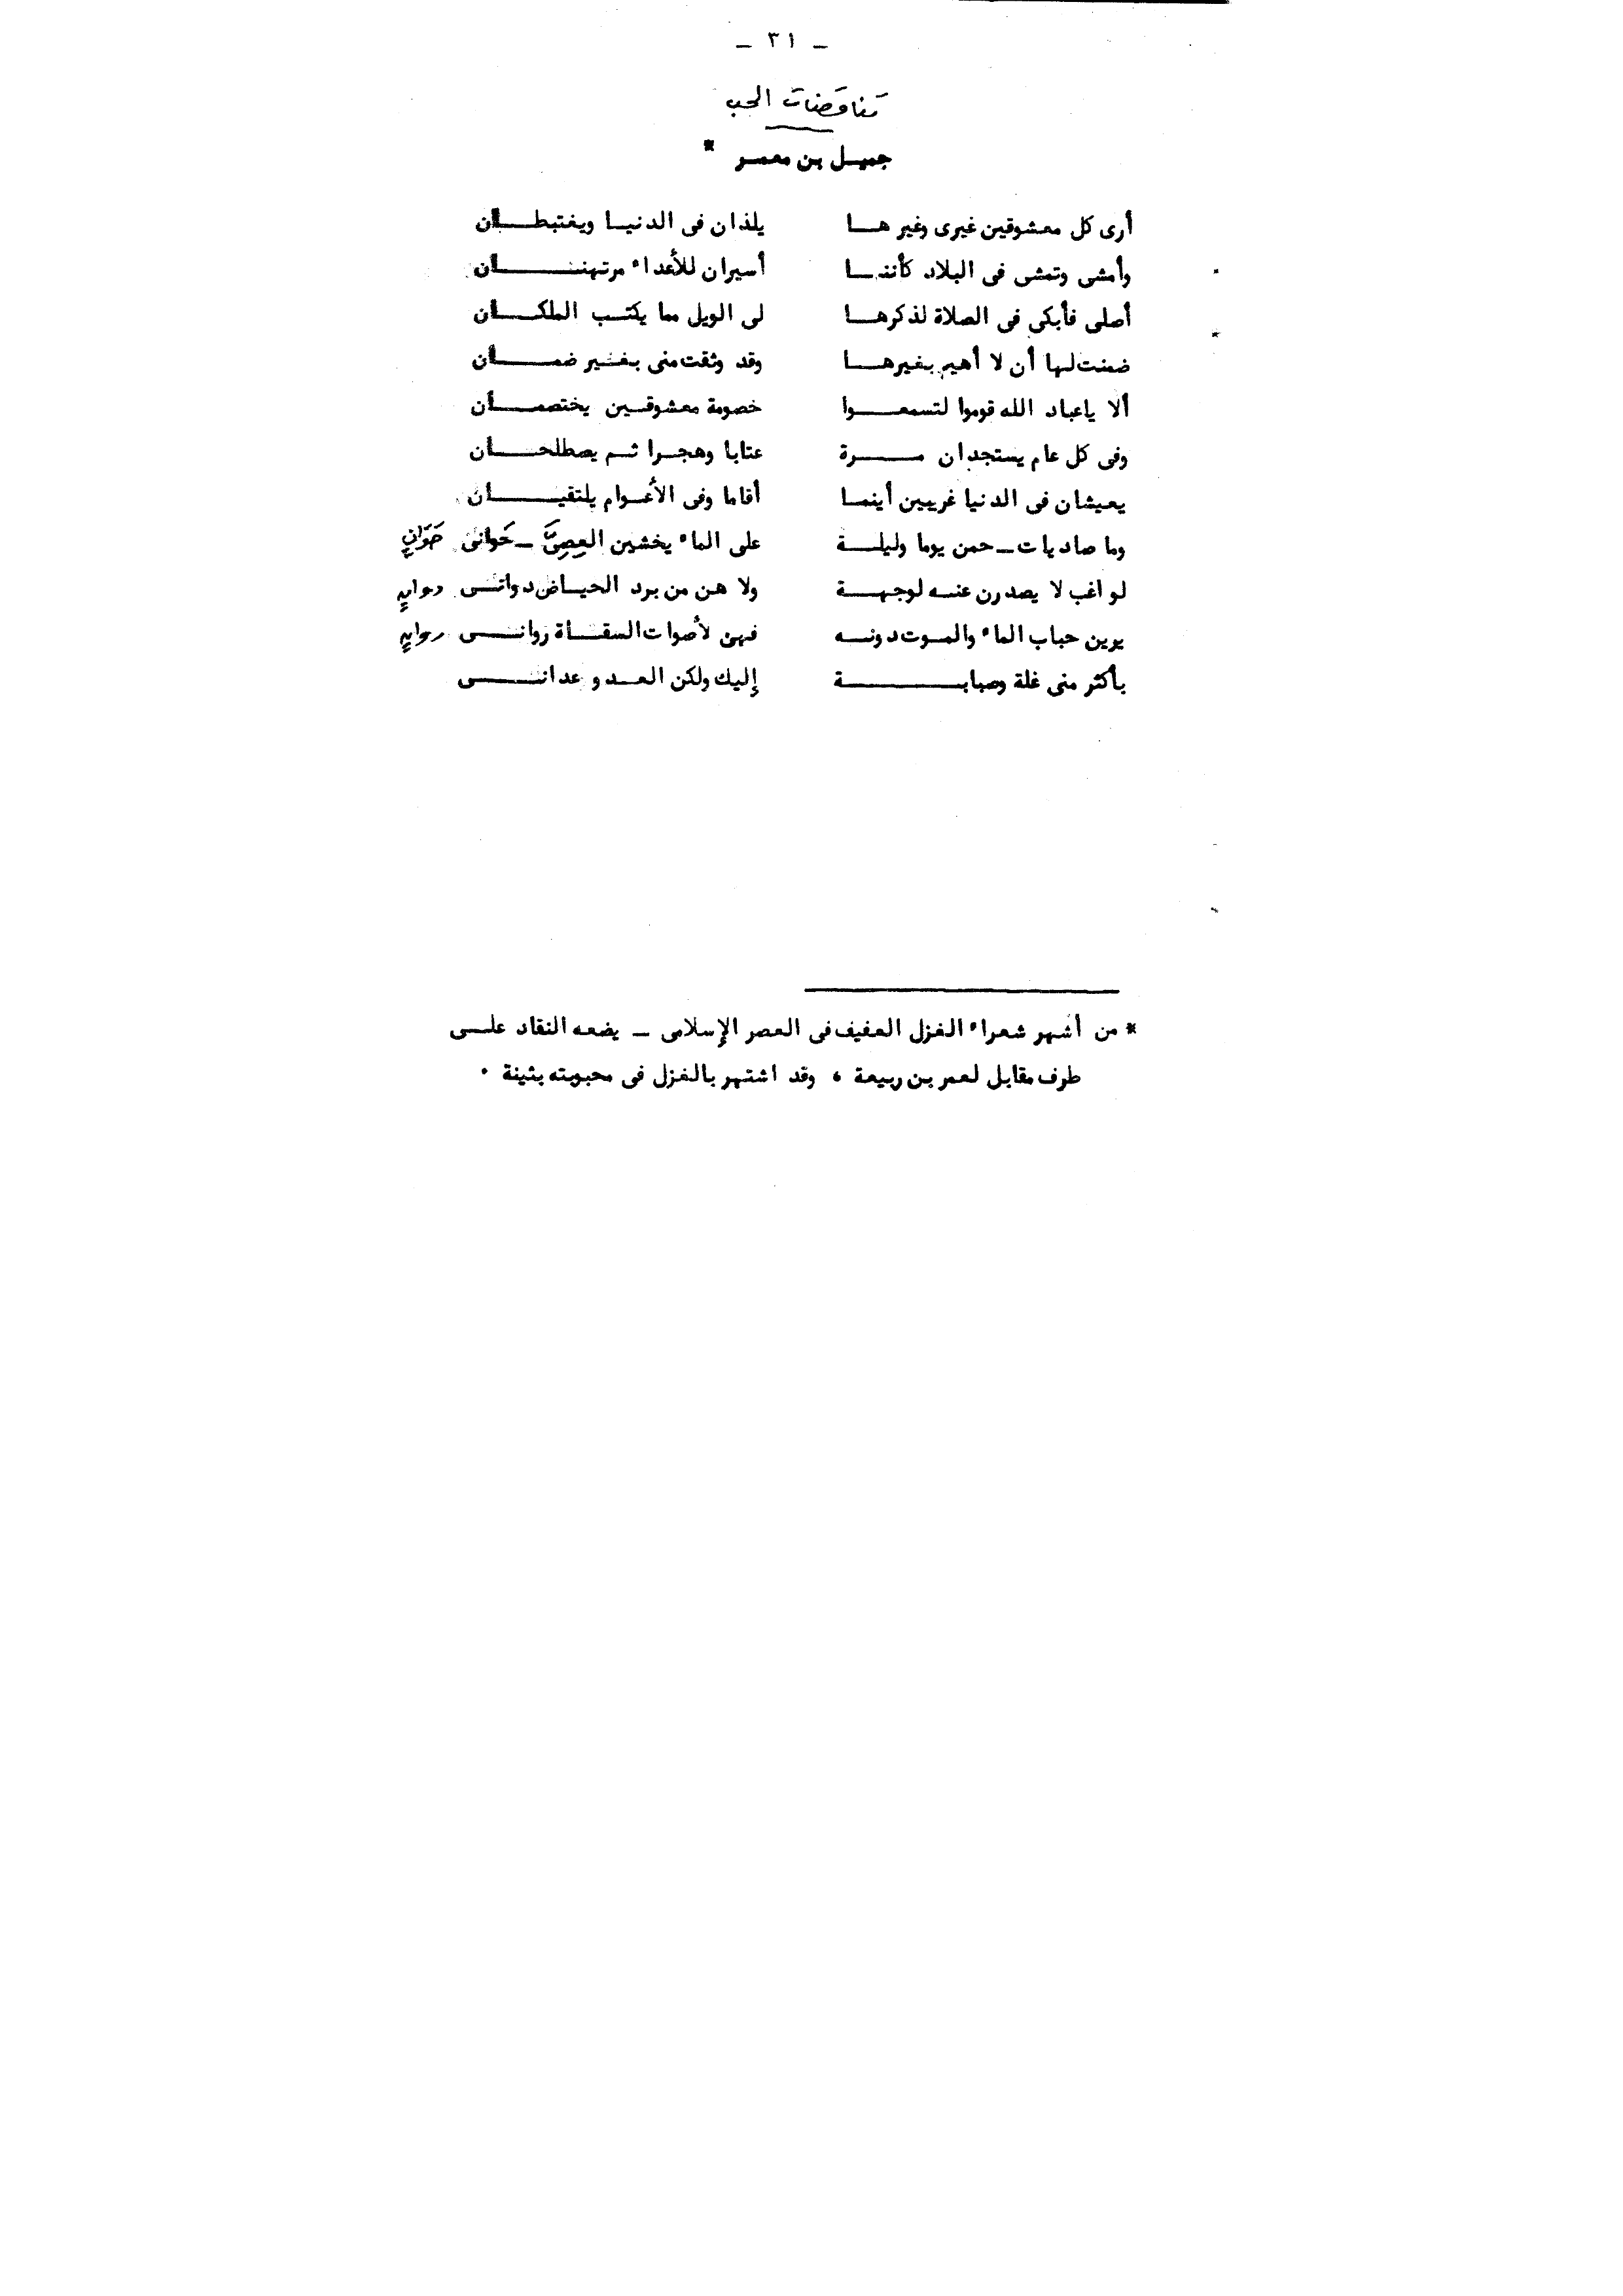 – ٣١ –
تناقضات الحب
جميل بن معمر *
أرى كل معشوقين غيرى وغيرها يلذان فى الدنيا ويغتبطان
وأمشى وتمشى فى البلاد كأننا أسيران للأعداء مرتهنان
أصلى فأبكى فى الصلاة لذكرها لى الويل مما يكتب الملكان
ضمنت لها أن لا أهيم بغيرها وقد وثقت منى بغير ضمان
ألا ياعباد الله قوموا لتسمعوا خصومة معشوقين يختصمان
وفى كل عام يستجدان مرة عتابا وهجرا ثم يصطلحان
يعيشان فى الدنيا غريبين أينما أقاما وفى الأعوام يلتقيان
وما صاديات – حمن يوما وليلة على الماء يخشين العِصِىَّ – حَوانى حَوَانٍ
لواغب لا يصدرن عنه لوجهة ولا هن من برد الحياض دوانى دوانٍ
يرين حباب الماء والموت دونه فهن لأصوات السقاة روانى روانٍ
بأكثر منى غلة وصبابة إليك ولكن العدو عدانى
* من أشهر شعراء الغزل العفيف فى العصر الإسلامى – يضعه النقاد على
طرف مقابل لعمر بن ربيعة ، وقد اشتهر بالغزل فى محبوبته بثينة .